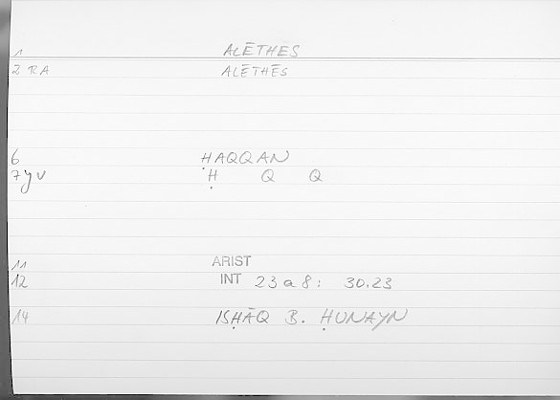 1 ALĒTHES
2 RA ALĒTHĒS
6 ḤAQQAN
7 yv Ḥ Q Q
11 ARIST
12 INT 23a8: 30.23
14 ISḤĀQ B. ḤUNAYN